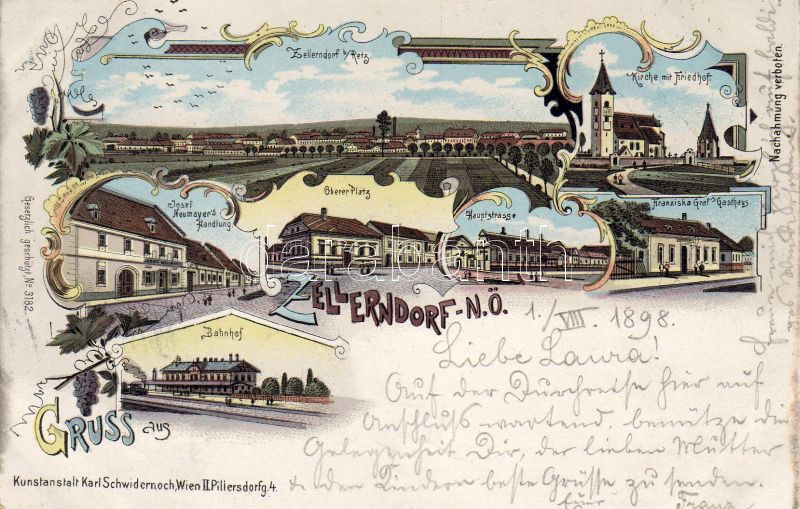 Zellerndorf b/Retz
Kirche mit Friedhof.
Nachahmung verboten.
Josef
Neumayer's
Handlung
Oberer Platz
Hauptstrasse
Franziska Graf's Gasthaus.
Gesetzlich geschützt, No 3182.
darabanth
ZELLERNDORF-N.Ö.
Bahnhof
GRUSS aus
Kunstanstalt Karl Schwidernoch, Wien II. Pillersdorfg. 4.
1./VIII. 1898.
Liebe Laura!
Auf der Durchreise hier auf
Anschluss wartend benütze die
Gelegenheit Dir, der lieben Mutter
& den Kindern beste Grüsse zu senden.
Euer
Franz